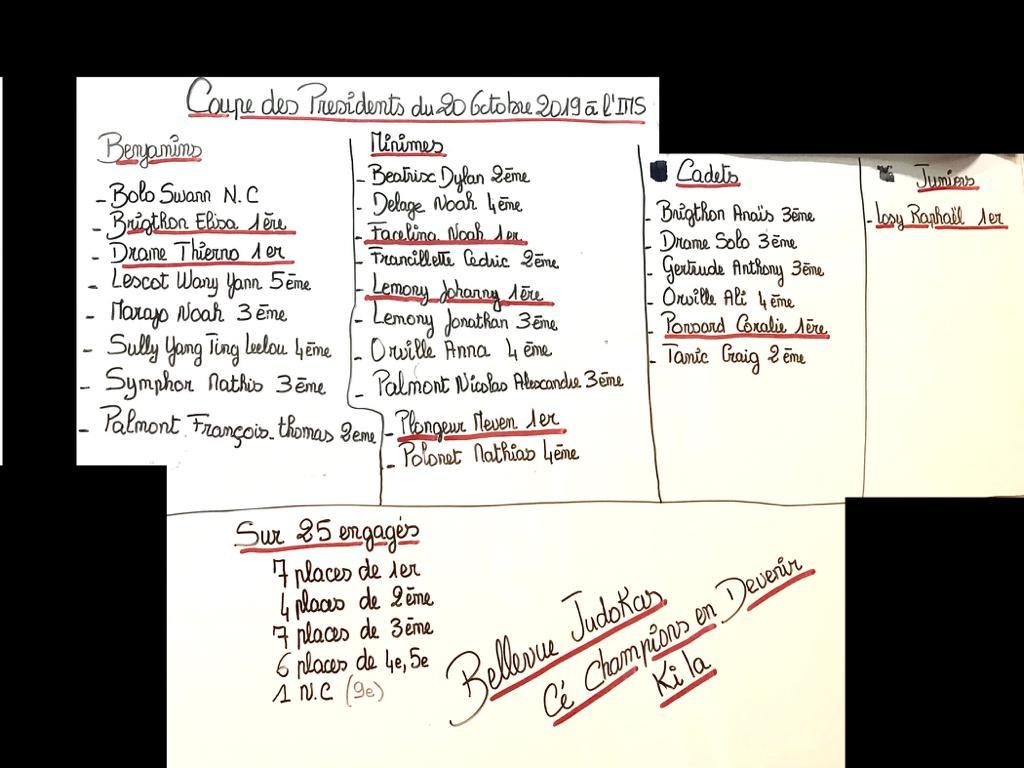 Coupe des Presidents du 20 Octobre 2019 à l'IMS
Benjamins
- Bolo Swann N.C
- Brigthon Elisa 1ère
- Drame Thierno 1er
- Lescot Wany Yann 5ème
- Marajo Noah 3ème
- Sully Yang Ting Leelou 4ème
- Symphor Mathis 3ème
- Palmont François-thomas 2eme
Minimes
- Beatrix Dylan 2ème
- Delage Noah 4ème
- Facelina Noah 1er
- Francillette Cédric 2ème
- Lemony Johanny 1ère
- Lemony Jonathan 3ème
- Orville Anna 4ème
- Palmont Nicolas Alexandre 3ème
- Plongeur Meven 1er
- Polonet Mathias 4ème
Cadets
- Brigthon Anaïs 3ème
- Drame Solo 3ème
- Gertrude Anthony 3ème
- Orville Ali 4ème
- Ponsard Coralie 1ère
- Tanic Craig 2ème
Juniors
- Losy Raphaël 1er
Sur 25 engagés
7 places de 1er
4 places de 2ème
7 places de 3ème
6 places de 4e, 5e
1 N.C (9e)
Bellevue Judokas
Cé Champions en Devenir
Ki la